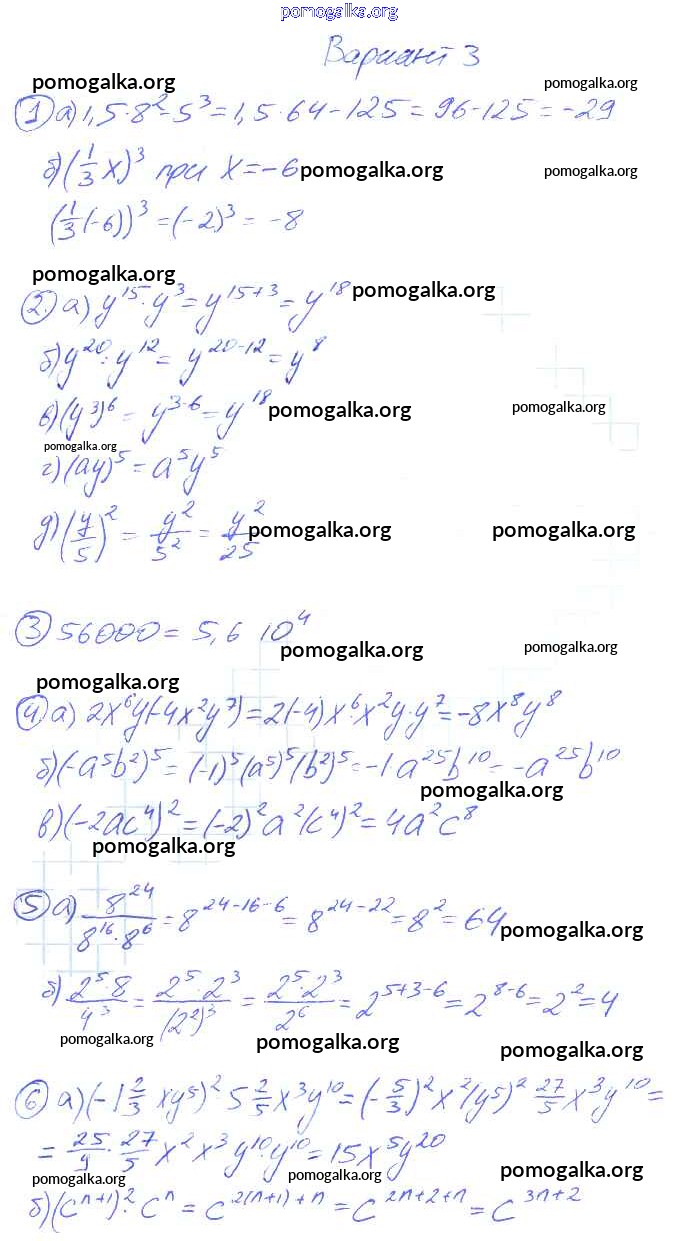 pomogalka.org
Вариант 3
pomogalka.org pomogalka.org
1) а) 1,5·8²-5³=1,5·64-125=96-125=-29
б) (1/3 x)³ при x=-6 pomogalka.org pomogalka.org
(1/3 (-6))³=(-2)³=-8
pomogalka.org
2) а) y¹⁵·y³=y¹⁵⁺³=y¹⁸ pomogalka.org
б) y²⁰:y¹²=y²⁰⁻¹²=y⁸
в) (y³)⁶=y³·⁶=y¹⁸ pomogalka.org pomogalka.org
pomogalka.org
г) (ay)⁵=a⁵y⁵
д) (y/5)²=y²/5²=y²/25 pomogalka.org pomogalka.org
3) 56000=5,6 10⁴
pomogalka.org pomogalka.org
pomogalka.org
4) а) 2x⁶y(-4x²y⁷)=2(-4)x⁶·x²y·y⁷=-8x⁸y⁸
б) (-a⁵b²)⁵=(-1)⁵(a⁵)⁵(b²)⁵=-1a²⁵b¹⁰=-a²⁵b¹⁰
pomogalka.org
в) (-2ac⁴)²=(-2)²a²(c⁴)²=4a²c⁸
pomogalka.org
5) а) 8²⁴/(8¹⁶·8⁶)=8²⁴⁻¹⁶⁻⁶=8²⁴⁻²²=8²=64 pomogalka.org
б) (2⁵·8)/4³=(2⁵·2³)/(2²)³=(2⁵·2³)/2⁶=2⁵⁺³⁻⁶=2⁸⁻⁶=2²=4
pomogalka.org pomogalka.org pomogalka.org
6) а) (-1 2/3 xy⁵)² 5 2/5 x³y¹⁰=(-5/3)²x²(y⁵)² 27/5 x³y¹⁰=
=25/9·27/5 x²x³y¹⁰y¹⁰=15x⁵y²⁰
pomogalka.org pomogalka.org pomogalka.org
б) (cⁿ⁺¹)²·cⁿ=c²⁽ⁿ⁺¹⁾⁺ⁿ=c²ⁿ⁺²⁺ⁿ=c³ⁿ⁺²